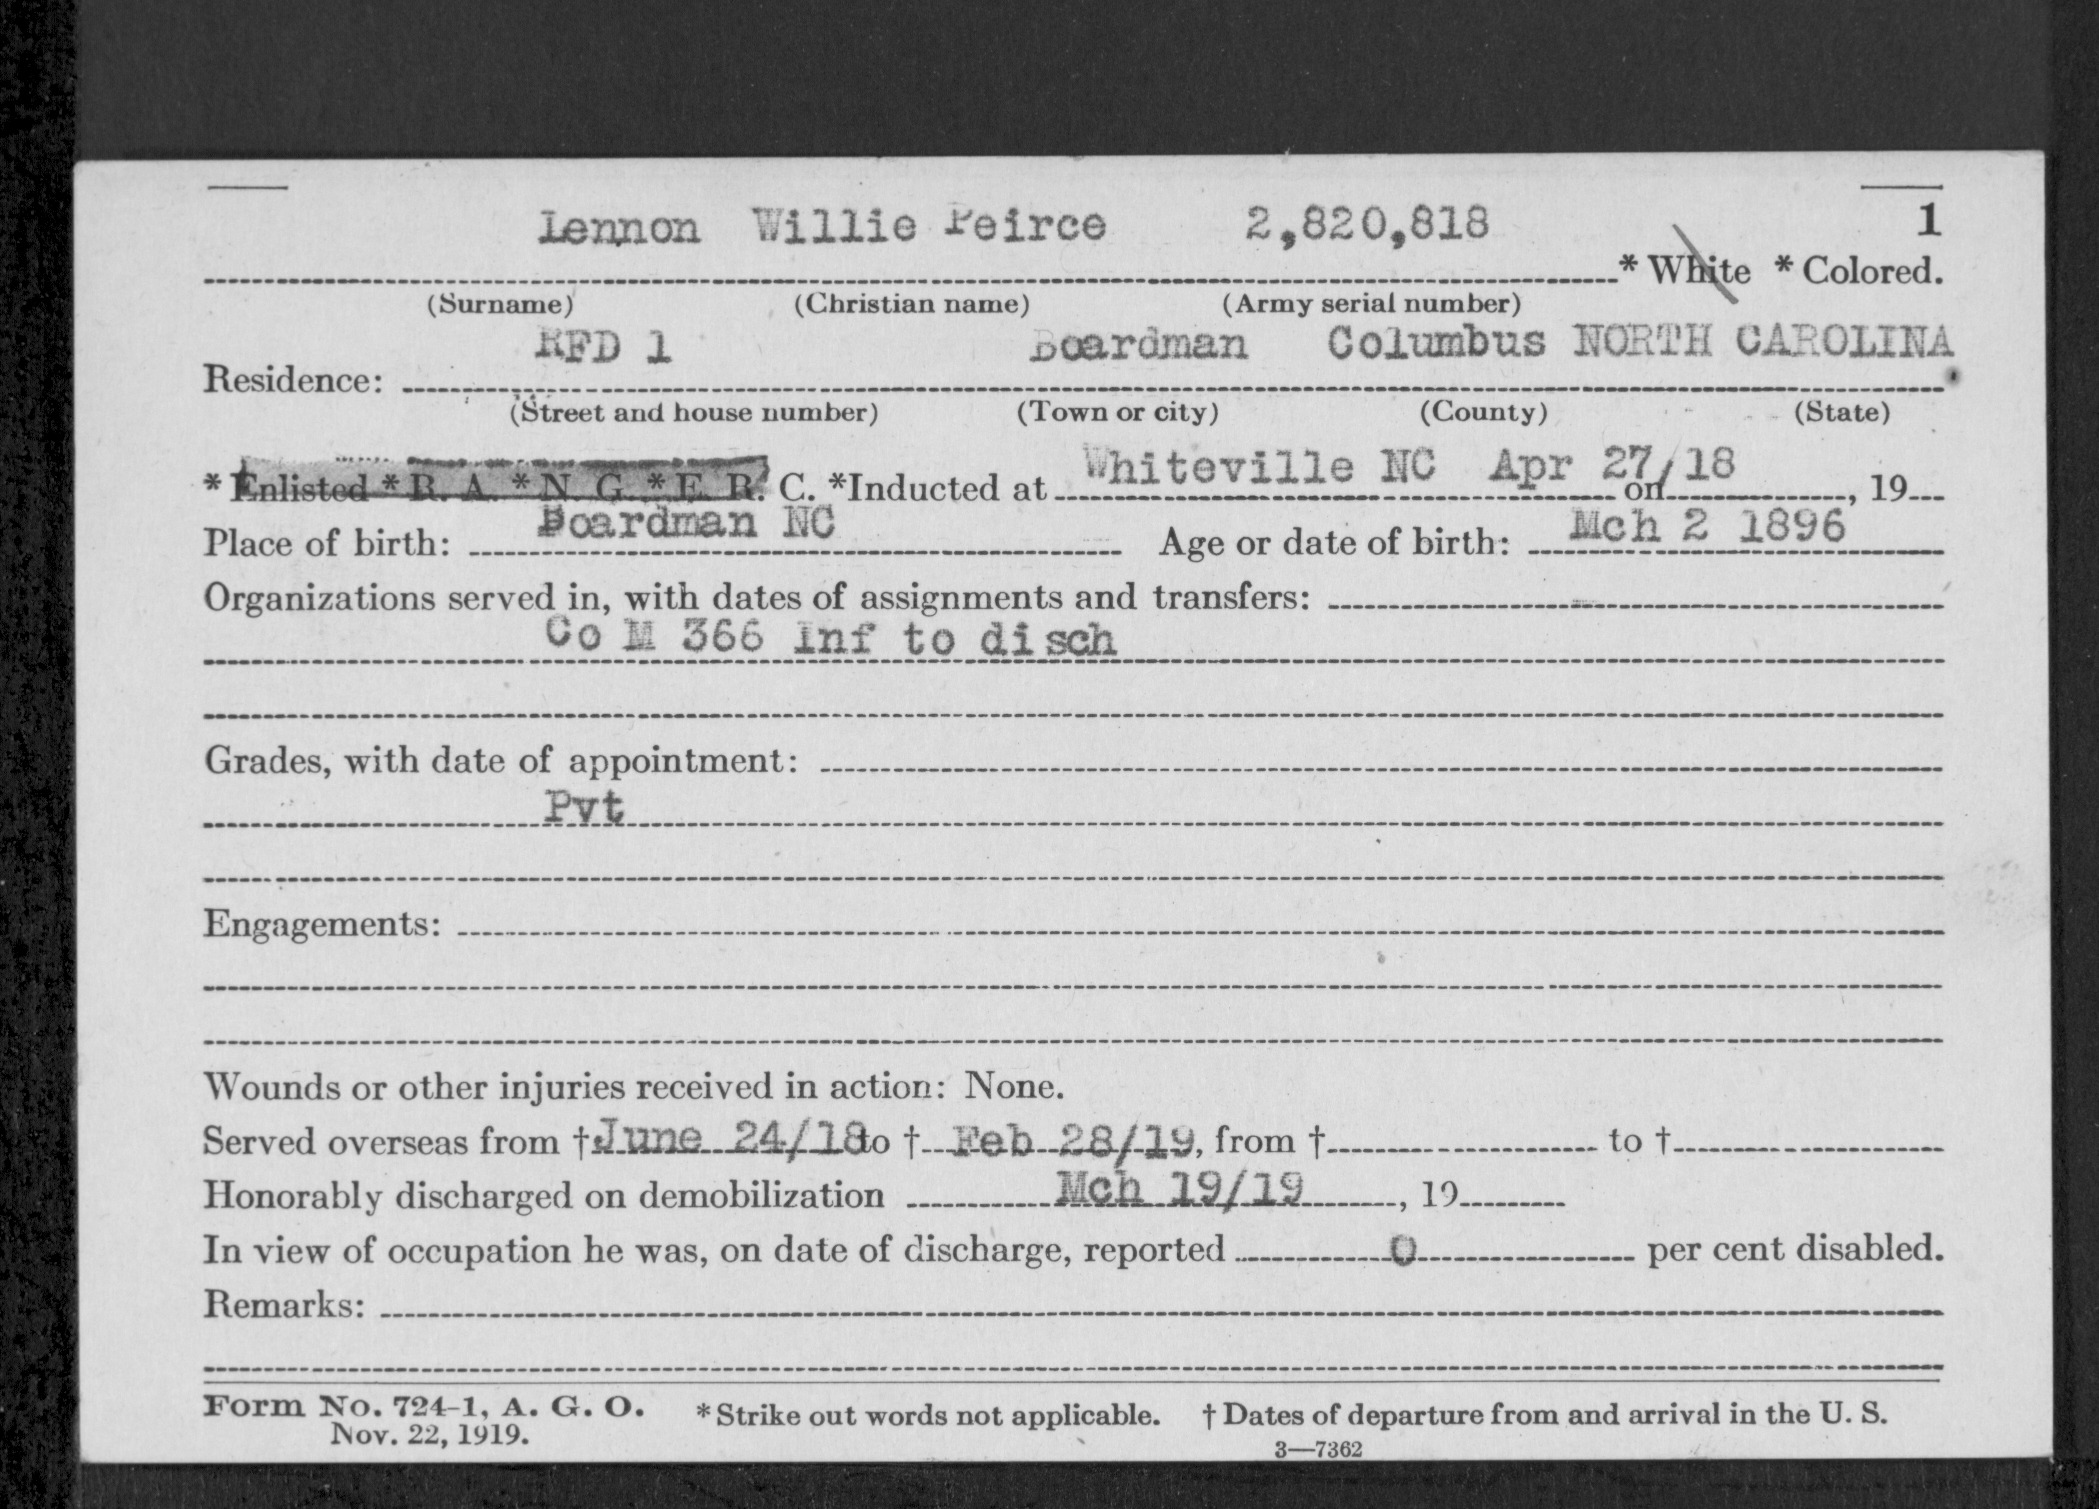 Lennon Willie Peirce 2,820,818 1
* White * Colored.
(Surname) (Christian name) (Army serial number)
RFD 1 Boardman Columbus NORTH CAROLINA
Residence:
(Street and house number) (Town or city) (County) (State)
* Enlisted * R. A. * N. G. * E. R. C. *Inducted at Whiteville NC on Apr 27/18, 19
Place of birth: Boardman NC Age or date of birth: Mch 2 1896
Organizations served in, with dates of assignments and transfers:
Co M 366 Inf to disch
Grades, with date of appointment:
Pvt
Engagements:
Wounds or other injuries received in action: None.
Served overseas from † June 24/18 to † Feb 28/19, from † to †
Honorably discharged on demobilization Mch 19/19, 19
In view of occupation he was, on date of discharge, reported 0 per cent disabled.
Remarks:
Form No. 724-1, A. G. O. * Strike out words not applicable. † Dates of departure from and arrival in the U. S.
Nov. 22, 1919.
3—7362